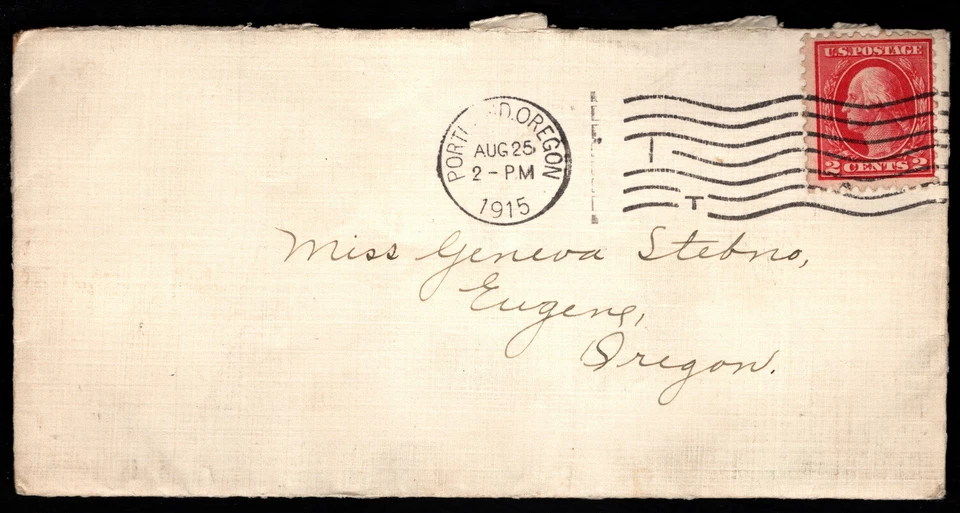 U.S.POSTAGE
2 CENTS 2
PORTLAND, OREGON
AUG 25
2 - PM
1915
1
T
Miss Geneva Stebno,
Eugene,
Oregon.